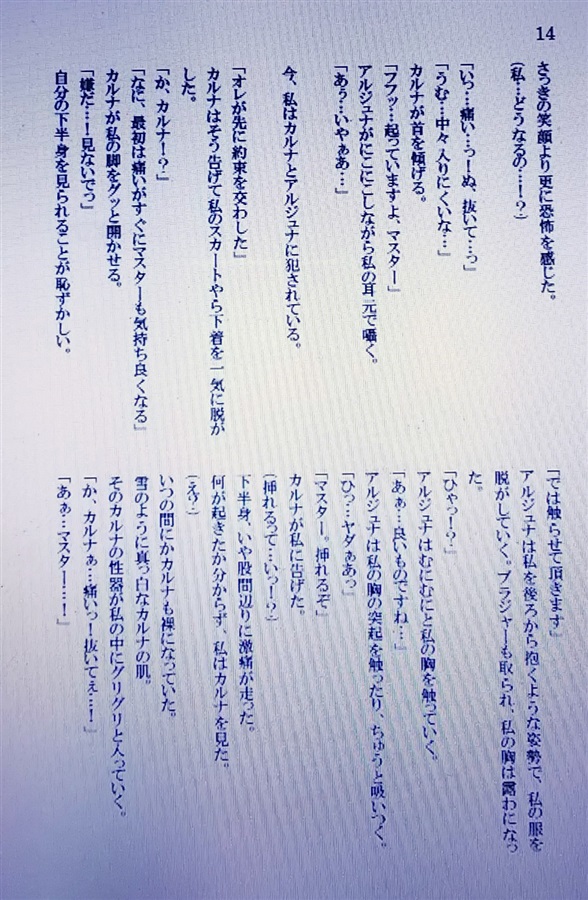 14
さっきの笑顔より更に恐怖を感じた。
（私…どうなるの…！？）
「いっ…痛い…っーぬ、抜いて…っ」
「うむ…中々入りにくいな…」
カルナが首を傾げる。
「フフッ…起っていますよ、マスター」
アルジュナがにこにこしながら私の耳元で囁く。
「あぅ…いやぁあ…」
今、私はカルナとアルジュナに犯されている。
「オレが先に約束を交わした」
カルナはそう告げて私のスカートやら下着を一気に脱が
した。
「か、カルナ！？」
「なに、最初は痛いがすぐにマスターも気持ち良くなる」
カルナが私の脚をグッと開かせる。
「嫌だ…！見ないでっ」
自分の下半身を見られることが恥ずかしい。
「では触らせて頂きます」
アルジュナは私を後ろから抱くような姿勢で、私の服を
脱がしていく。ブラジャーも取られ、私の胸は露わになっ
た。
「ひゃっ！？」
アルジュナはむにむにと私の胸を触っていく。
「あぁ…良いものですね…」
アルジュナは私の胸の突起を触ったり、ちゅうと吸いつく。
「ひっ…ヤダぁあっ」
「マスター。挿れるぞ」
カルナが私に告げた。
（挿れるって…いっ！？）
下半身、いや股間辺りに激痛が走った。
何が起きたか分からず、私はカルナを見た。
（えっ…）
いつの間にかカルナも裸になっていた。
雪のように真っ白なカルナの肌。
そのカルナの性器が私の中にグリグリと入っていく。
「か、カルナぁ…痛いっ！抜いてぇ…！」
「あぁ…マスター…！」